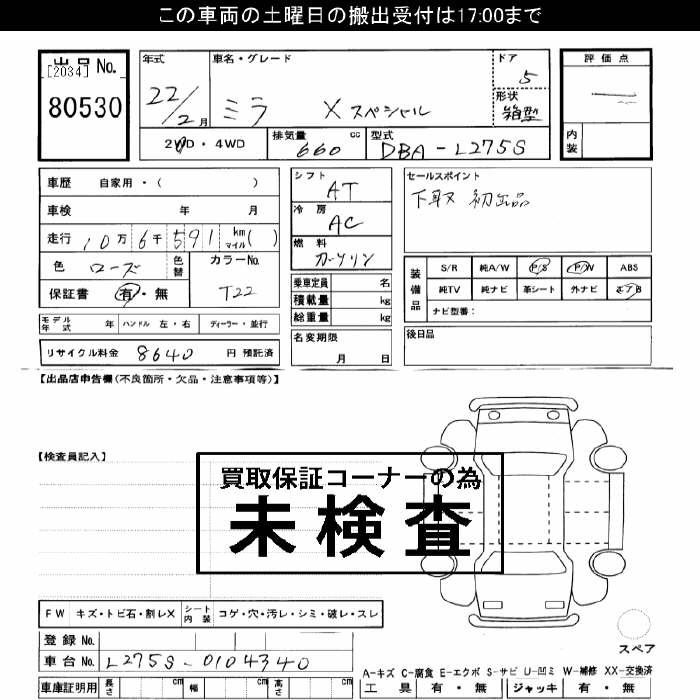 この車両の土曜日の搬出受付は17:00まで
出品No.
[2034]
80530
年式
22/2月
車名・グレード
ミラ Xスペシャル
ドア
5
形状
箱型
2WD・4WD
排気量
660 cc
型式
DBA-L275S
評価点
内装
車歴 自家用・( )
車検 年 月
走行 10万6千591 km マイル( )
色 ローズ
色替
カラーNo.
T22
保証書 有・無
モデル年式 年 ハンドル 左・右 ディーラー・並行
リサイクル料金 8640 円 預託済
シフト
AT
冷房
AC
燃料
ガソリン
乗車定員 名
積載量 kg
総重量 kg
名変期限
月 日
セールスポイント
下取 初出品
装備品
S/R 純A/W P/S P/W ABS
純TV 純ナビ 革シート 外ナビ エアB
ナビ型番:
後日品
【出品店申告欄(不良箇所・欠品・注意事項等)】
【検査員記入】
買取保証コーナーの為
未検査
FW キズ・トビ石・割レX
シート内装 コゲ・穴・汚レ・シミ・破レ・スレ
登録No.
車台No. L275S-0104340
車庫証明用 長さ cm 幅 cm 高さ cm
スペア
A-キズ C-腐食 E-エクボ S-サビ U-凹ミ W-補修 XX-交換済
工具 有・無 ジャッキ 有・無